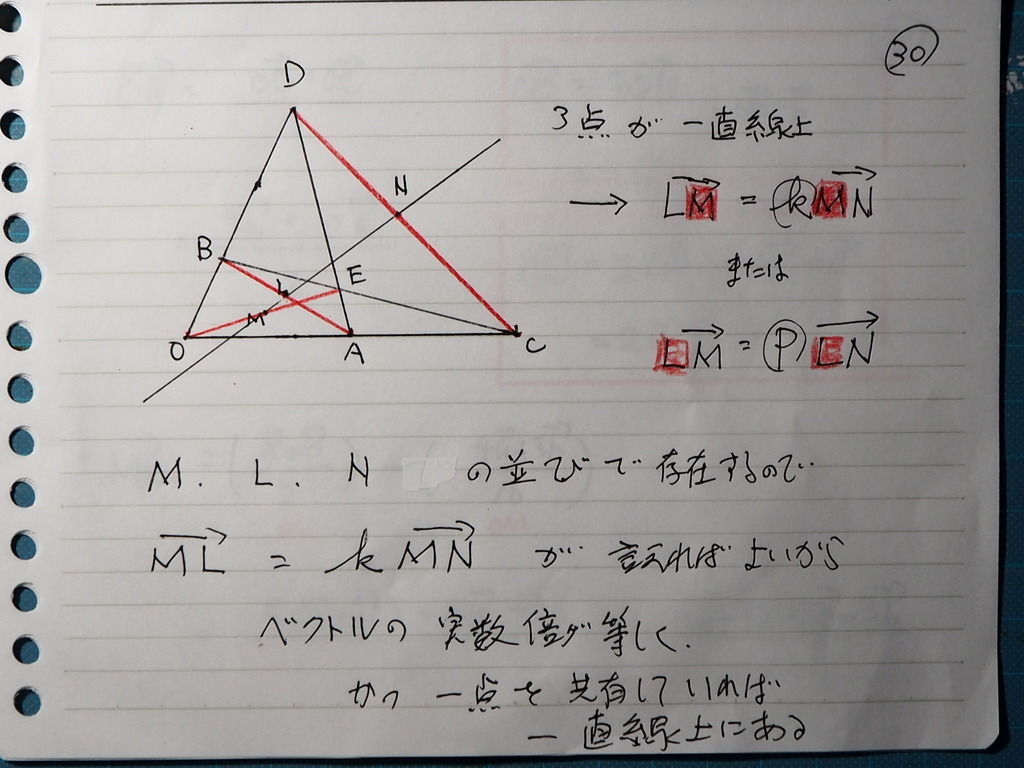 30
D
3点が一直線上
N
→ LM = kMN
または
B
E
L
M
LM = P LN
O
A
C
M. L. N の並びで存在するので
ML = kMN が 言えればよいから
ベクトルの 実数倍が等しく、
かつ 一点を 共有していれば
一直線上にある